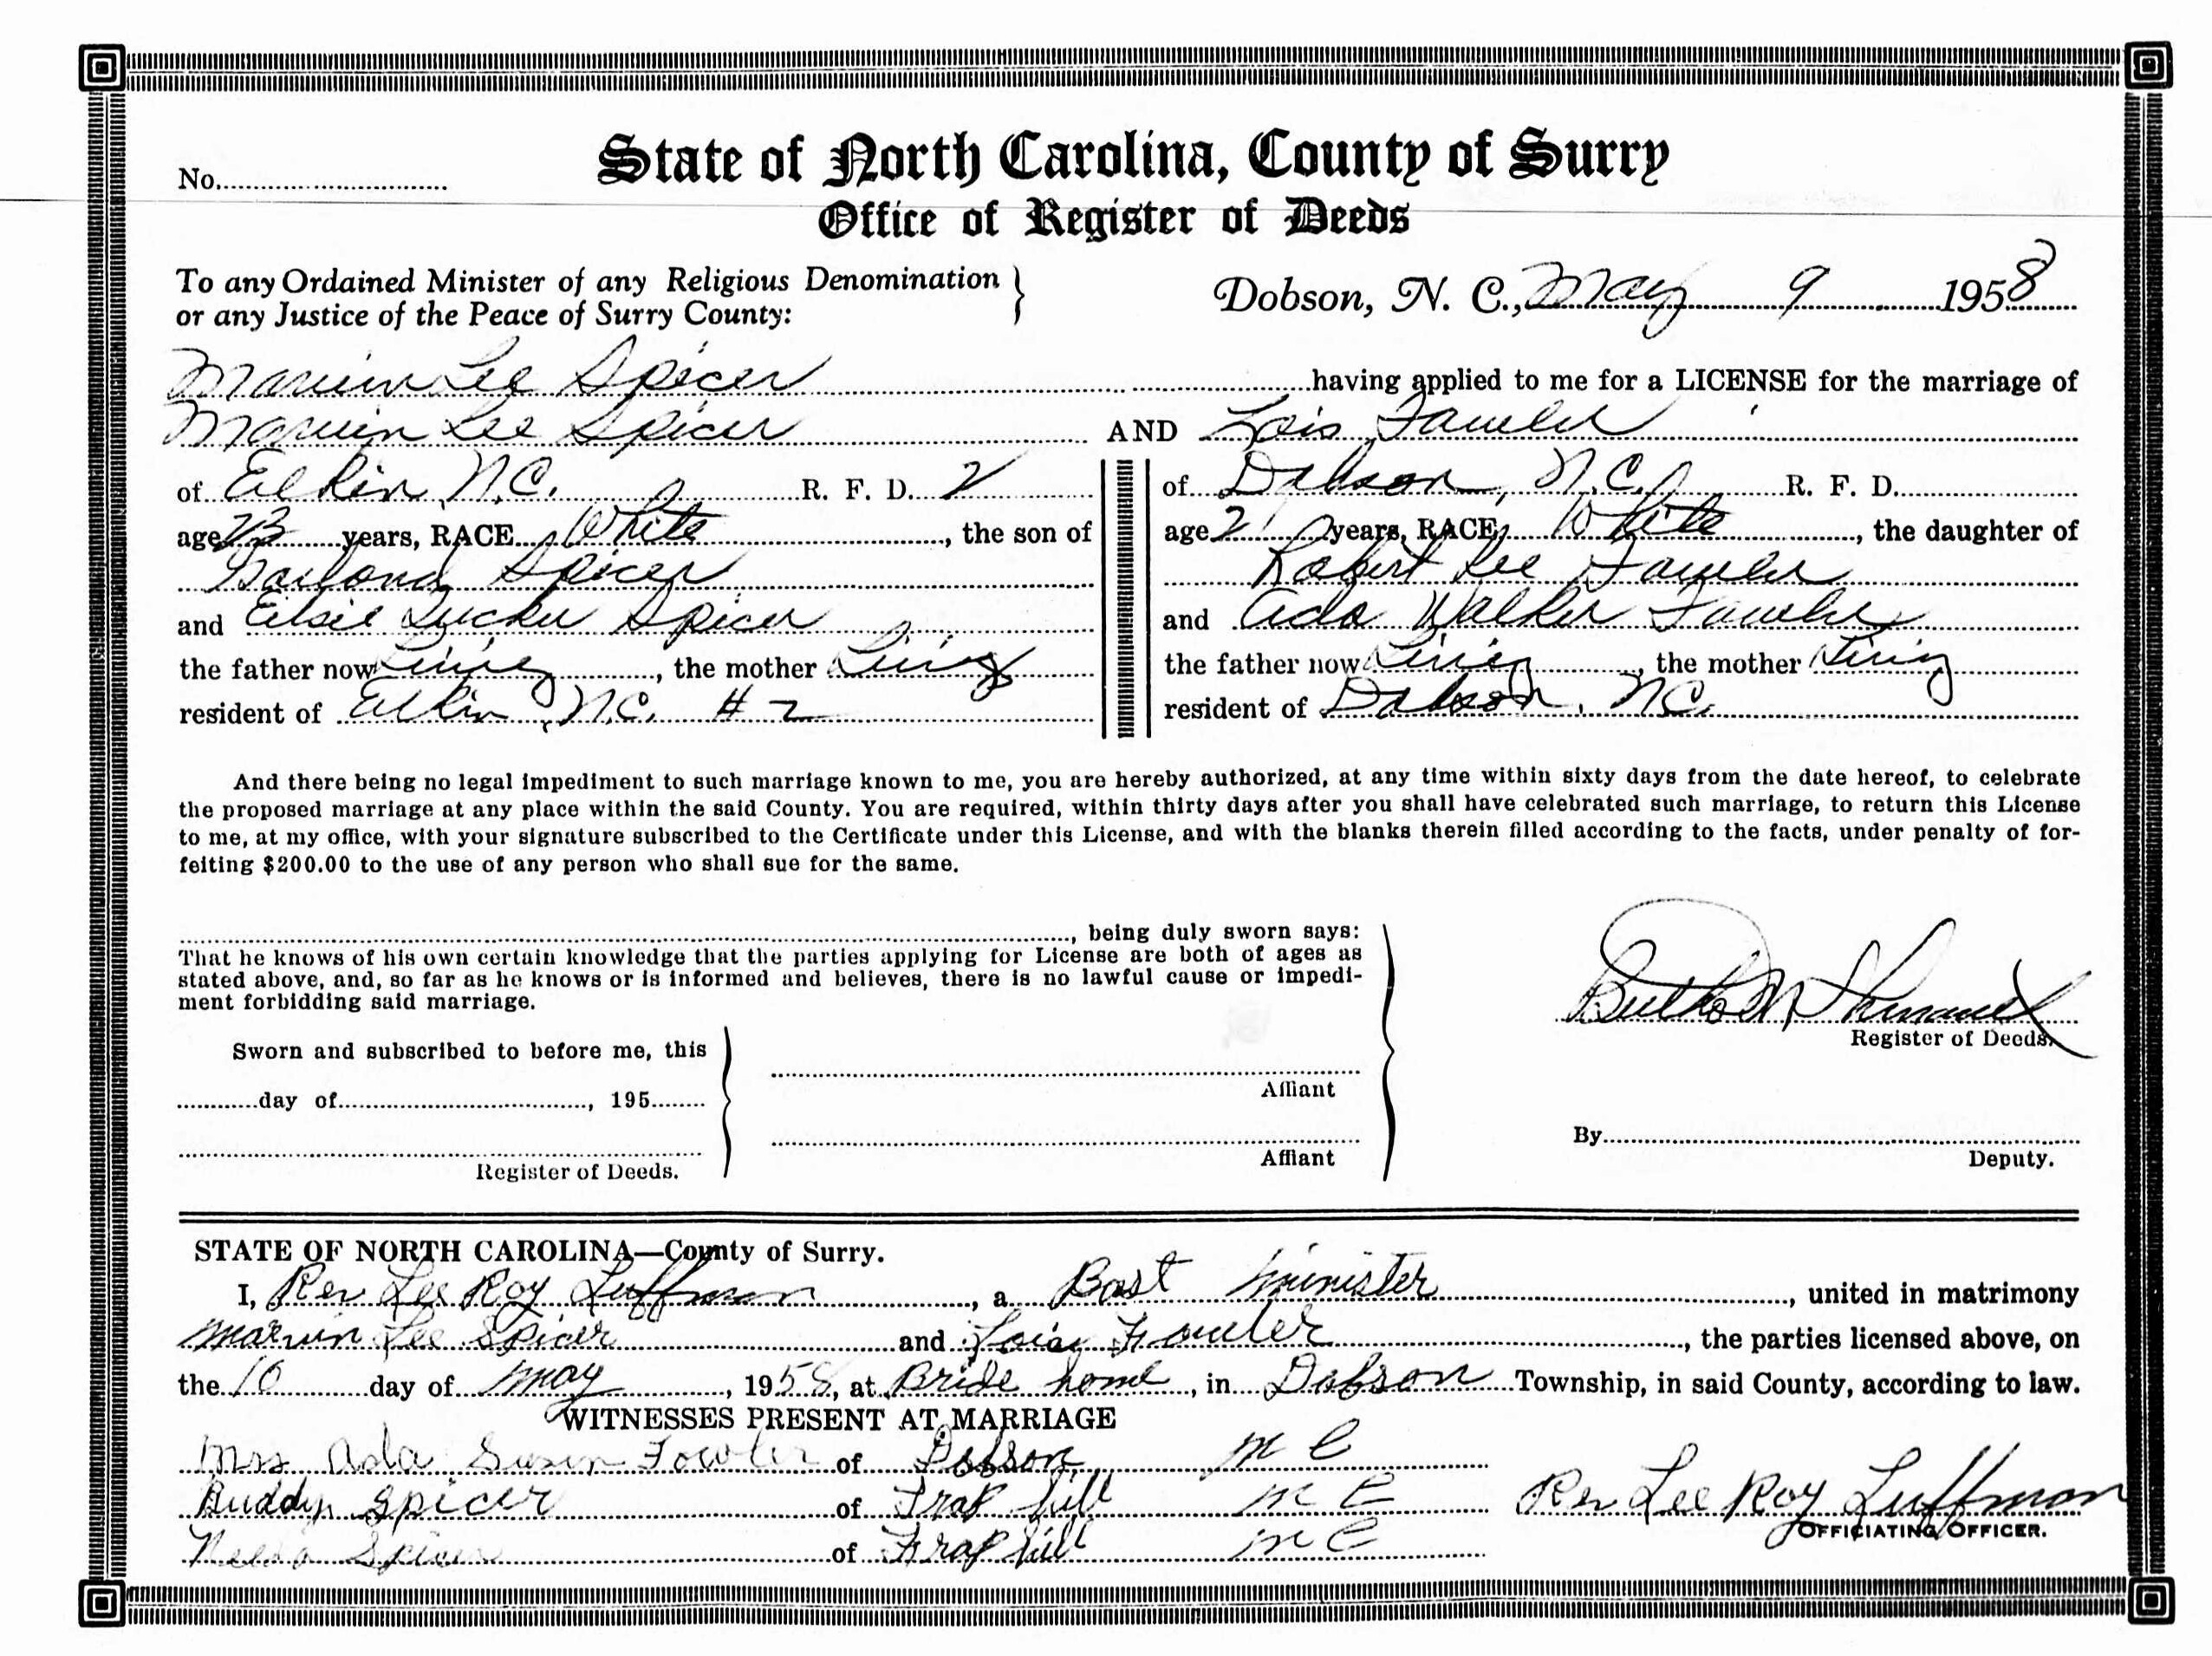 No.
State of North Carolina, County of Surry
Office of Register of Deeds
To any Ordained Minister of any Religious Denomination
or any Justice of the Peace of Surry County:
Dobson, N. C., May 9 1958
Marvin Lee Spicer having applied to me for a LICENSE for the marriage of
Marvin Lee Spicer AND Lois Fowler
of Elkin, N.C. R. F. D. 2
age 23 years, RACE White, the son of
Spicer
and Elsie Tucker Spicer
the father now Living, the mother Living
resident of Elkin, N.C. # 2
of Dobson, N.C. R. F. D.
age 21 years, RACE White, the daughter of
Robert Lee Fowler
and Ada Walker Fowler
the father now Living, the mother Living
resident of Dobson, N.C.
And there being no legal impediment to such marriage known to me, you are hereby authorized, at any time within sixty days from the date hereof, to celebrate
the proposed marriage at any place within the said County. You are required, within thirty days after you shall have celebrated such marriage, to return this License
to me, at my office, with your signature subscribed to the Certificate under this License, and with the blanks therein filled according to the facts, under penalty of for-
feiting $200.00 to the use of any person who shall sue for the same.
, being duly sworn says:
That he knows of his own certain knowledge that the parties applying for License are both of ages as
stated above, and, so far as he knows or is informed and believes, there is no lawful cause or impedi-
ment forbidding said marriage.
Sworn and subscribed to before me, this
day of , 195
Register of Deeds.
Affiant
Affiant
Register of Deeds.
By
Deputy.
STATE OF NORTH CAROLINA—County of Surry.
I, Rev Lee Roy Luffman, a Bast minister, united in matrimony
Marvin Lee Spicer and Lois Fowler, the parties licensed above, on
the 10 day of may, 1958, at Bride home, in Dobson Township, in said County, according to law.
WITNESSES PRESENT AT MARRIAGE
Mrs Ada Susan Fowler of Dobson N C
Buddy Spicer of Trap hill N C
Spicer of Trap hill N C
Rev Lee Roy Luffman
OFFICIATING OFFICER.